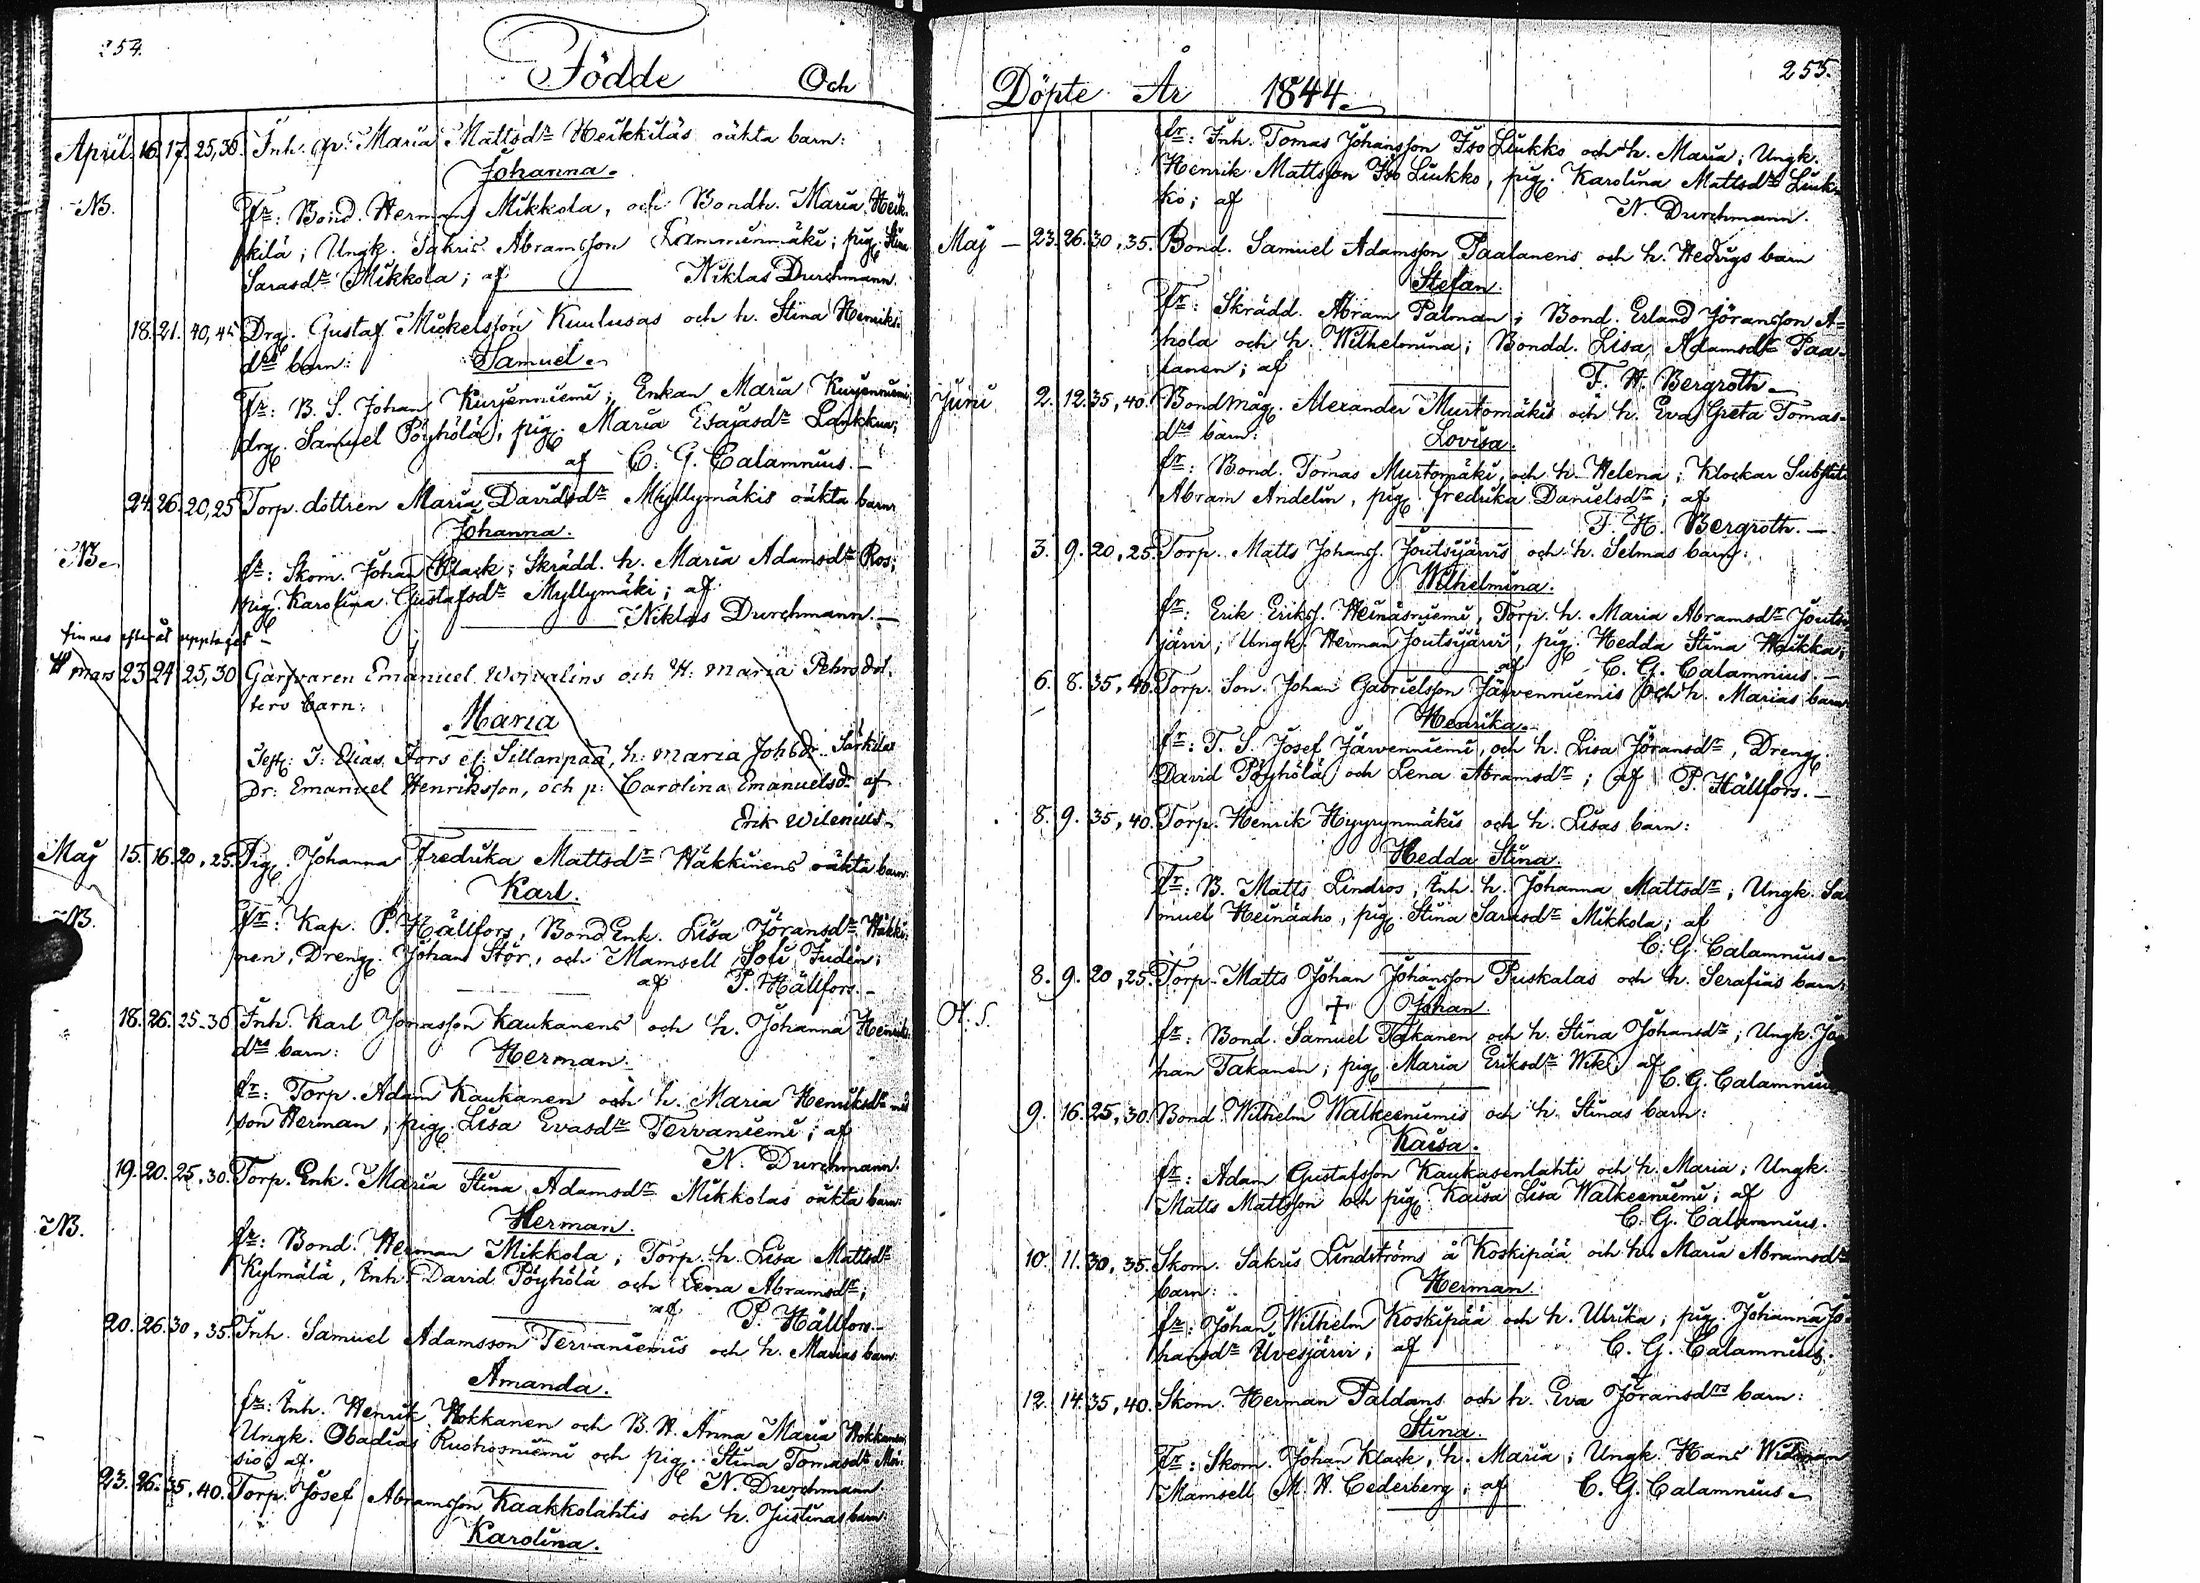 254.
Födde Och
April. 16. 17. 25,30. Inh. p. Maria Mattsdr Heikkiläs oäkta barn:
Johanna.
NB. fr: Bond. Herman Mikkola, och Bondh. Maria Heik-
kilä; Ungk. Sakris Abramsson Lamminmäki; pig. Stina
Sarasdr Mikkola; af Niklas Durchmann.
18. 21. 40,45 Drg. Gustaf Mickelsson Kuulusas och h. Stina Henriks-
drs barn: Samuel.
Fr: B. S. Johan Kurjenniemi; Enkan Maria Kurjenniemi;
drg. Samuel Pöyhölä; pig. Maria Esajasdr Lankkua;
af C. G. Calamnius.
24. 26. 20,25 Torp. dottren Maria Davidsdr Myllymäkis oäkta barn
Johanna.
NB. fr: Skom. Johan Klack; Skrädd. h. Maria Adamsdr Ros;
pig. Karolina Gustafsdr Myllymäki; af
Niklas Durchmann.
finnes efteråt upptaget
mars 23 24 25,30 Garfvaren Emanuel och H. Maria Pehrsdot-
ters barn:
Maria
Test: I: Elias Fors el: Sillanpää, h: Maria Johsdr Särkilax
Dr: Emanuel Henriksson, och p: Carolina Emanuelsdr af
Erik Wilenius.
Maj 15. 16. 20,25. Pig. Johanna Fredrika Mattsdr Häkkinens oäkta barn:
Karl.
NB. fr: Kap. P. Hällfors, Bond Enk. Lisa Jöransdr Häkki-
nen, Dreng. Johan Stör, och Mamsell Sofi Judén;
af P. Hällfors.
18. 26. 25-30 Inh. Karl Jonasson Kaukanens och h. Johanna Henriks-
drs barn: Herman.
fr: Torp. Adam Kaukanen och h. Maria Henriksdr med
son Herman, pig. Lisa Evasdr Tervaniemi; af
N. Durchmann.
19. 20. 25,30. Torp. Enk. Maria Stina Adamsdr Mikkolas oäkta barn:
Herman.
NB. fr: Bond. Herman Mikkola; Torp. h. Lisa Mattsdr
Kylmälä, Inh. David Pöyhölä och Lena Abramsdr;
af P. Hällfors.
20. 26. 30,35. Inh. Samuel Adamsson Tervaniemis och h. Marias barn:
Amanda.
fr: Inh. Henrik Hokkanen och B. H. Anna Maria Hokkanen
Ungk. Obadias Ruohosniemi och pig. Stina Tomasdr Mäi-
siö; af. N. Durchmann.
23. 26. 35,40. Torp. Josef Abramsson Kaakkolahtis och h. Justinas barn:
Karolina.
255.
Döpte År 1844.
fr: Inh. Tomas Johansson Iso Liukko och h. Maria; Ungk.
Henrik Mattsson Iso Liukko, pig. Karolina Mattsdr Liuk-
ko; af N. Durchmann.
Maj 23. 26. 30,35. Bond. Samuel Adamsson Paalanens och h. Hedvigs barn
Stefan.
fr: Skrädd. Abram Palman; Bond. Erland Jöransson A-
hola och h. Wilhelmina; Bondd. Lisa Adamsdr Paa-
lanen; af F. H. Bergroth.
Juni 2. 12. 35,40. Bondmåg. Alexander Murtomäkis och h. Eva Greta Tomas-
drs barn: Lovisa.
fr: Bond. Tomas Murtomäki, och h. Helena; Klockar Substit.
Abram Andelin, pig. Fredrika Danielsdr; af
F. H. Bergroth.
3. 9. 20,25. Torp. Matts Johanss. Joutsijärvis och h. Selmas barn:
Wilhelmina.
fr: Erik Erikss. Heinäsniemi, Torp. h. Maria Abramsdr Joutsi-
järvi; Ungk. Herman Joutsijärvi, pig. Hedda Stina Haikka;
af C. G. Calamnius.
6. 8. 35,40. Torp. Son. Johan Gabrielsson Järvenniemis och h. Marias barn
Henrika.
fr: T. S. Josef Järvenniemi, och h. Lisa Jöransdr, Dreng
David Pöyhölä och Lena Abramsdr; af P. Hällfors.
8. 9. 35,40. Torp. Henrik Hyyrynmäkis och h. Lisas barn:
Hedda Stina.
fr: B. Matts Lindros, Inh. h. Johanna Mattsdr; Ungk. Sa-
muel Heinäaho, pig. Stina Sarasdr Mikkola; af
C. G. Calamnius.
8. 9. 20,25. Torp. Matts Johan Johansson Puskalas och h. Serafias barn:
† Johan.
fr: Bond. Samuel Takanen och h. Stina Johansdr; Ungk. Jo-
han Takanen; pig. Maria Eriksdr Wik; af C. G. Calamnius
9. 16. 25,30. Bond. Wilhelm Walkeeniemis och h. Stinas barn:
Kaisa.
fr: Adam Gustafsson Kaukasenlahti och h. Maria; Ungk.
Matts Mattsson och pig. Kaisa Lisa Walkeeniemi; af
C. G. Calamnius.
10. 11. 30,35. Skom. Sakris Lindströms å Koskipää och h. Maria Abramsdrs
barn: Herman.
fr: Johan Wilhelm Koskipää och h. Ulrika; pig. Johanna Jo-
hansdr Uvesjärvi; af C. G. Calamnius.
12. 14. 35,40. Skom. Herman Paldans och h. Eva Jöransdrs barn:
Stina.
Fr: Skom. Johan Klack, h. Maria; Ungk. Hans Widman
Mamsell M. H. Cederberg; af C. G. Calamnius.